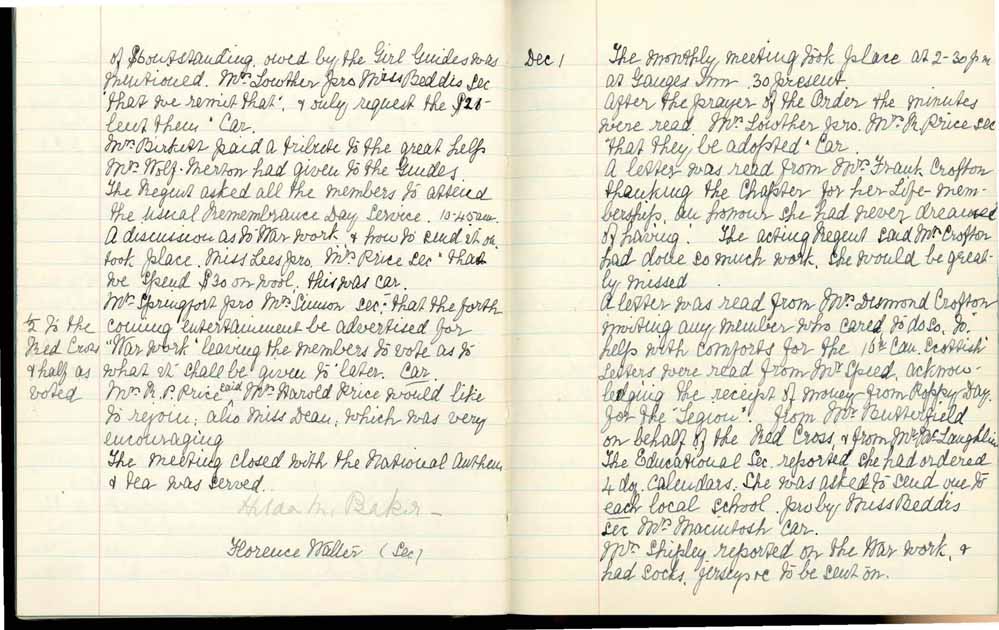 of $6 outstanding, owed by the Girl Guides was
mentioned. Mrs Lowther pro Miss Beddis sec
"that we remit that", & only request the $20-
lent them" Car.
Mrs Birkett paid a tribute to the great help
Mrs Wolf-Merton had given to the Guides.
The Regent asked all the members to attend
the usual Remembrance Day Service. 10-45 am.
A discussion as to War work, & how to send it on
took place. Miss Lees pro. Mrs Price sec "that
we spend $30 on wool, this was car.
Mrs Springfort pro Mrs Simson sec: that the forth
coming entertainment be advertised for
"War work" leaving the members to vote as to
what it shall be given to later. Car
Mrs R. P. Price said Mrs Harold Price would like
to rejoin, also Miss Dean, which was very
encouraging
The meeting closed with the National Anthem
& tea was served.
Hilda M. Baker-
Florence Walter (Sec)
½ to the
Red Cross
& half as
voted
Dec 1
The monthly meeting took place at 2-30 pm
at Ganges Inn. 30 present.
After the prayer of the Order the minutes
were read. Mrs Lowther pro. Mrs R Price sec
"that they be adopted" Car.
A letter was read from Mrs Frank Crofton
thanking the Chapter for her Life-mem-
bership, an honour she had never dreamed
of having". The acting Regent said Mrs Crofton
had done so much work, she would be great-
ly missed.
A letter was read from Mrs Desmond Crofton
inviting any member who cared to do so, to
help with comforts for the 16th Can. Scottish
Letters were read from Mr Speed, acknow-
ledging the receipt of money from Poppy Day.
for the "Legion". from Mrs Butterfield
on behalf of the Red Cross, & from Mrs McLaughlin
The Educational Sec. reported she had ordered
4 doz. Calendars. She was asked to send one to
each local school. pro by Miss Beddis
sec Mrs Macintosh Car.
Mrs Shipley reported on the War work, &
had socks, jerseys &c to be sent on.